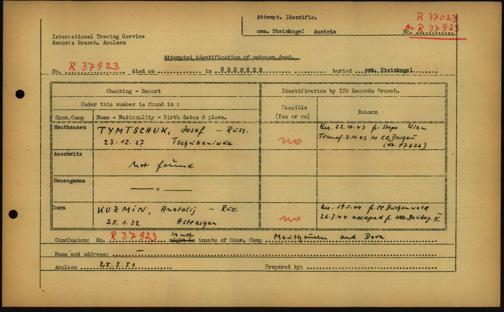 Attempt. Identific.
cem. Steinkogel Austria
R 37023
R 37923
International Tracing Service
Records Branch. Arolsen
Attempted identification of unknown dead.
No. R 37923 died on in EBENSEE buried cem. Steinkogel
Checking - Report
Identification by ITS Records Branch.
Under this number is found in :
Possible
(Yes or no)
Reason
Conc.Camp
Name - Nationality - Birth dates & place.
Mauthausen
TYMTSCHUK, Josef - Russ.
23.12.27
no
22.10.43 fr. Stapo Wien
Transf. 2.11.43 to CC Dachau
Auschwitz
not found
Neuengamme
— " —
Dora
KUZMIN, Anatolij - Russ.
25.1.22 Astrachan
no
19.5.44 fr. CC Buchenwald
26.7.44 escaped fr.
Conclusion: No. R 37923 is not inmate of Conc. Camp Mauthausen and Dora
Name and address: —
Arolsen 25.8.51 Prepared by: